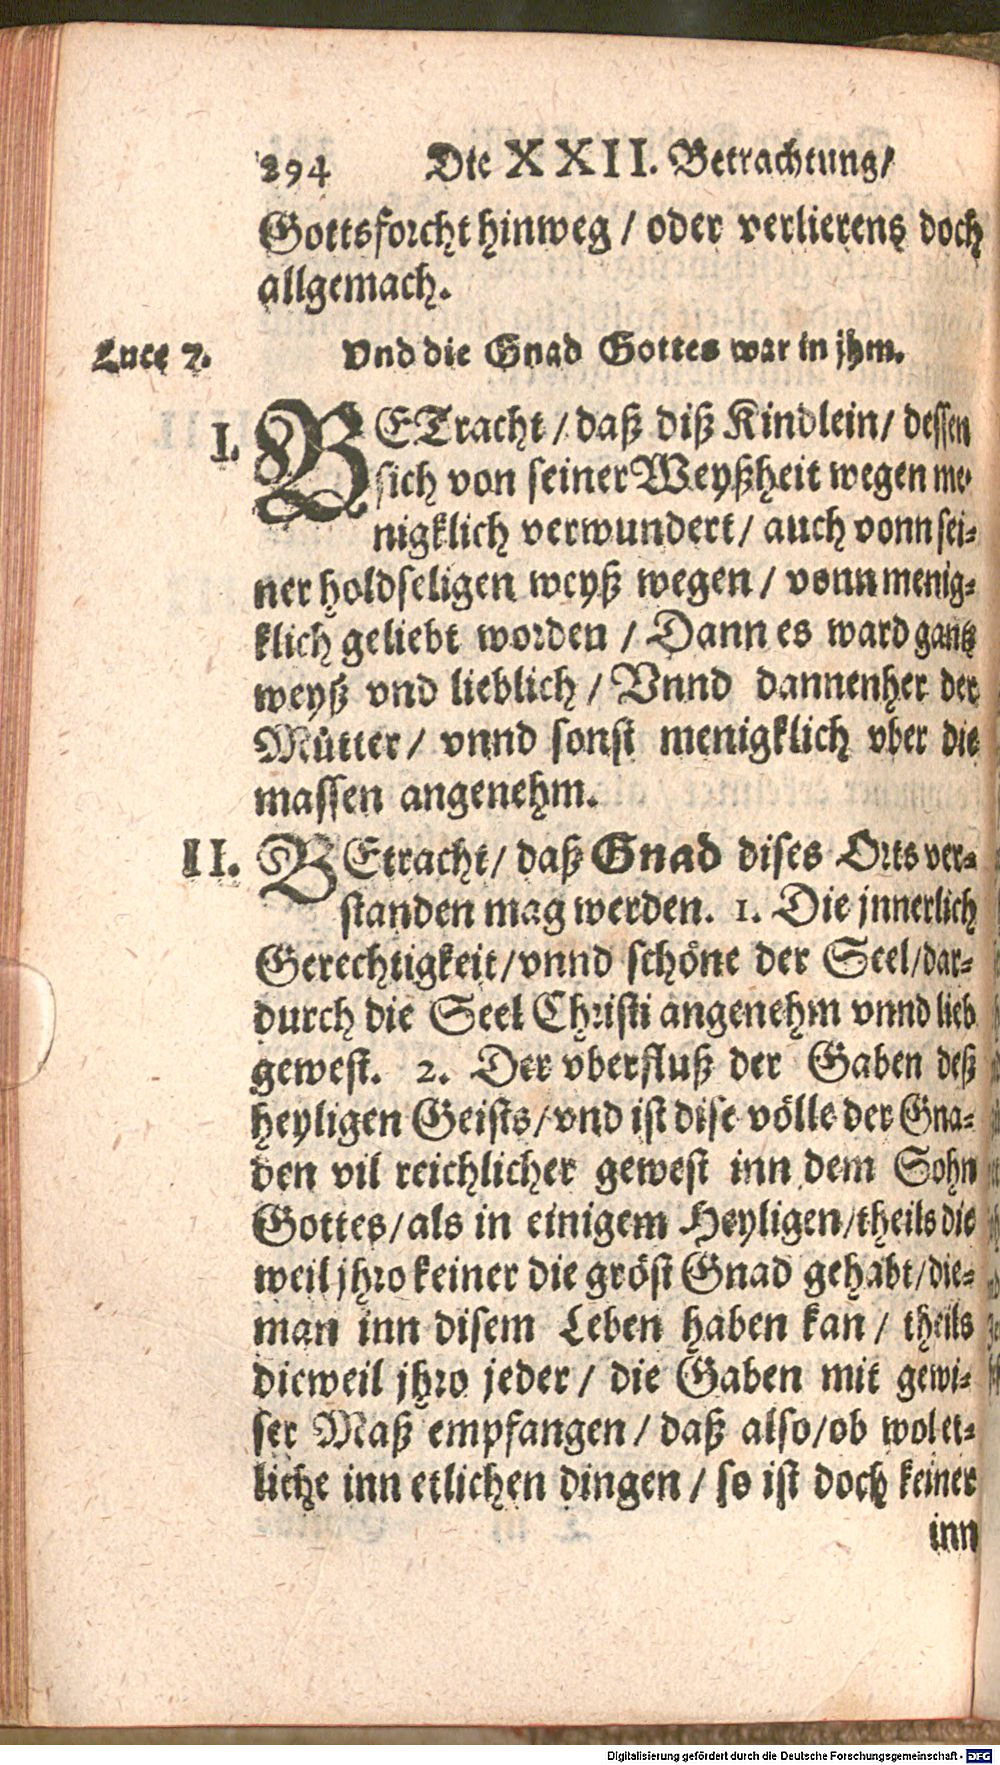 294 Die XXII. Betrachtung/
Gottsforcht hinweg / oder verlierens doch
allgemach.
Luce 2. Vnd die Gnad Gottes war in jhm.
I. BETracht / daß diß Kindlein / dessen
sich von seiner Weyßheit wegen me-
nigklich verwundert / auch vonn sei-
ner holdseligen weyß wegen / vonn menig-
klich geliebt worden / Dann es ward gantz
weyß vnd lieblich / Vnnd dannenher der
Mütter / vnnd sonst menigklich vber die
massen angenehm.
II. BEtracht / daß Gnad dises Orts ver-
standen mag werden. 1. Die jnnerlich
Gerechtigkeit / vnnd schöne der Seel / dar-
durch die Seel Christi angenehm vnnd lieb
gewest. 2. Der vberfluß der Gaben deß
heyligen Geists / vnd ist dise völle der Gna-
den vil reichlicher gewest inn dem Sohn
Gottes / als in einigem Heyligen / theils die
weil jhro keiner die gröst Gnad gehabt / die-
man inn disem Leben haben kan / theils
dieweil jhro jeder / die Gaben mit gewi-
ser Maß empfangen / daß also / ob wol et-
liche inn etlichen dingen / so ist doch keiner
inn
Digitalisierung gefördert durch die Deutsche Forschungsgemeinschaft - DFG